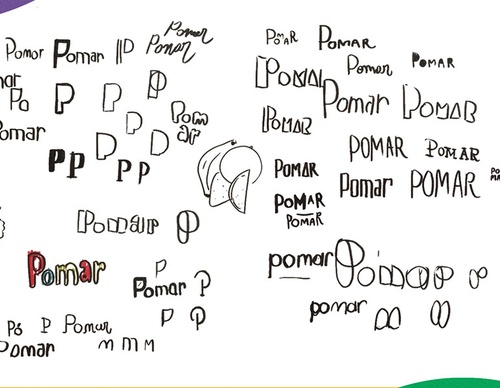 Pomar
Pomor Pomar P Pomar
Pa P P P
Pomar P Pomar
P P
PP PP
Pomar P
Pomar
P
Pomar P
P P
Pó P Pomar
Pomar M M M
POMAR POMAR
Pomar POMAR
POMAR
Pomar POMAR
POMAR
POMAR POMAR
POMAR
Pomar POMAR
POMAR
POMAR
pomar Pomar P P
pomar